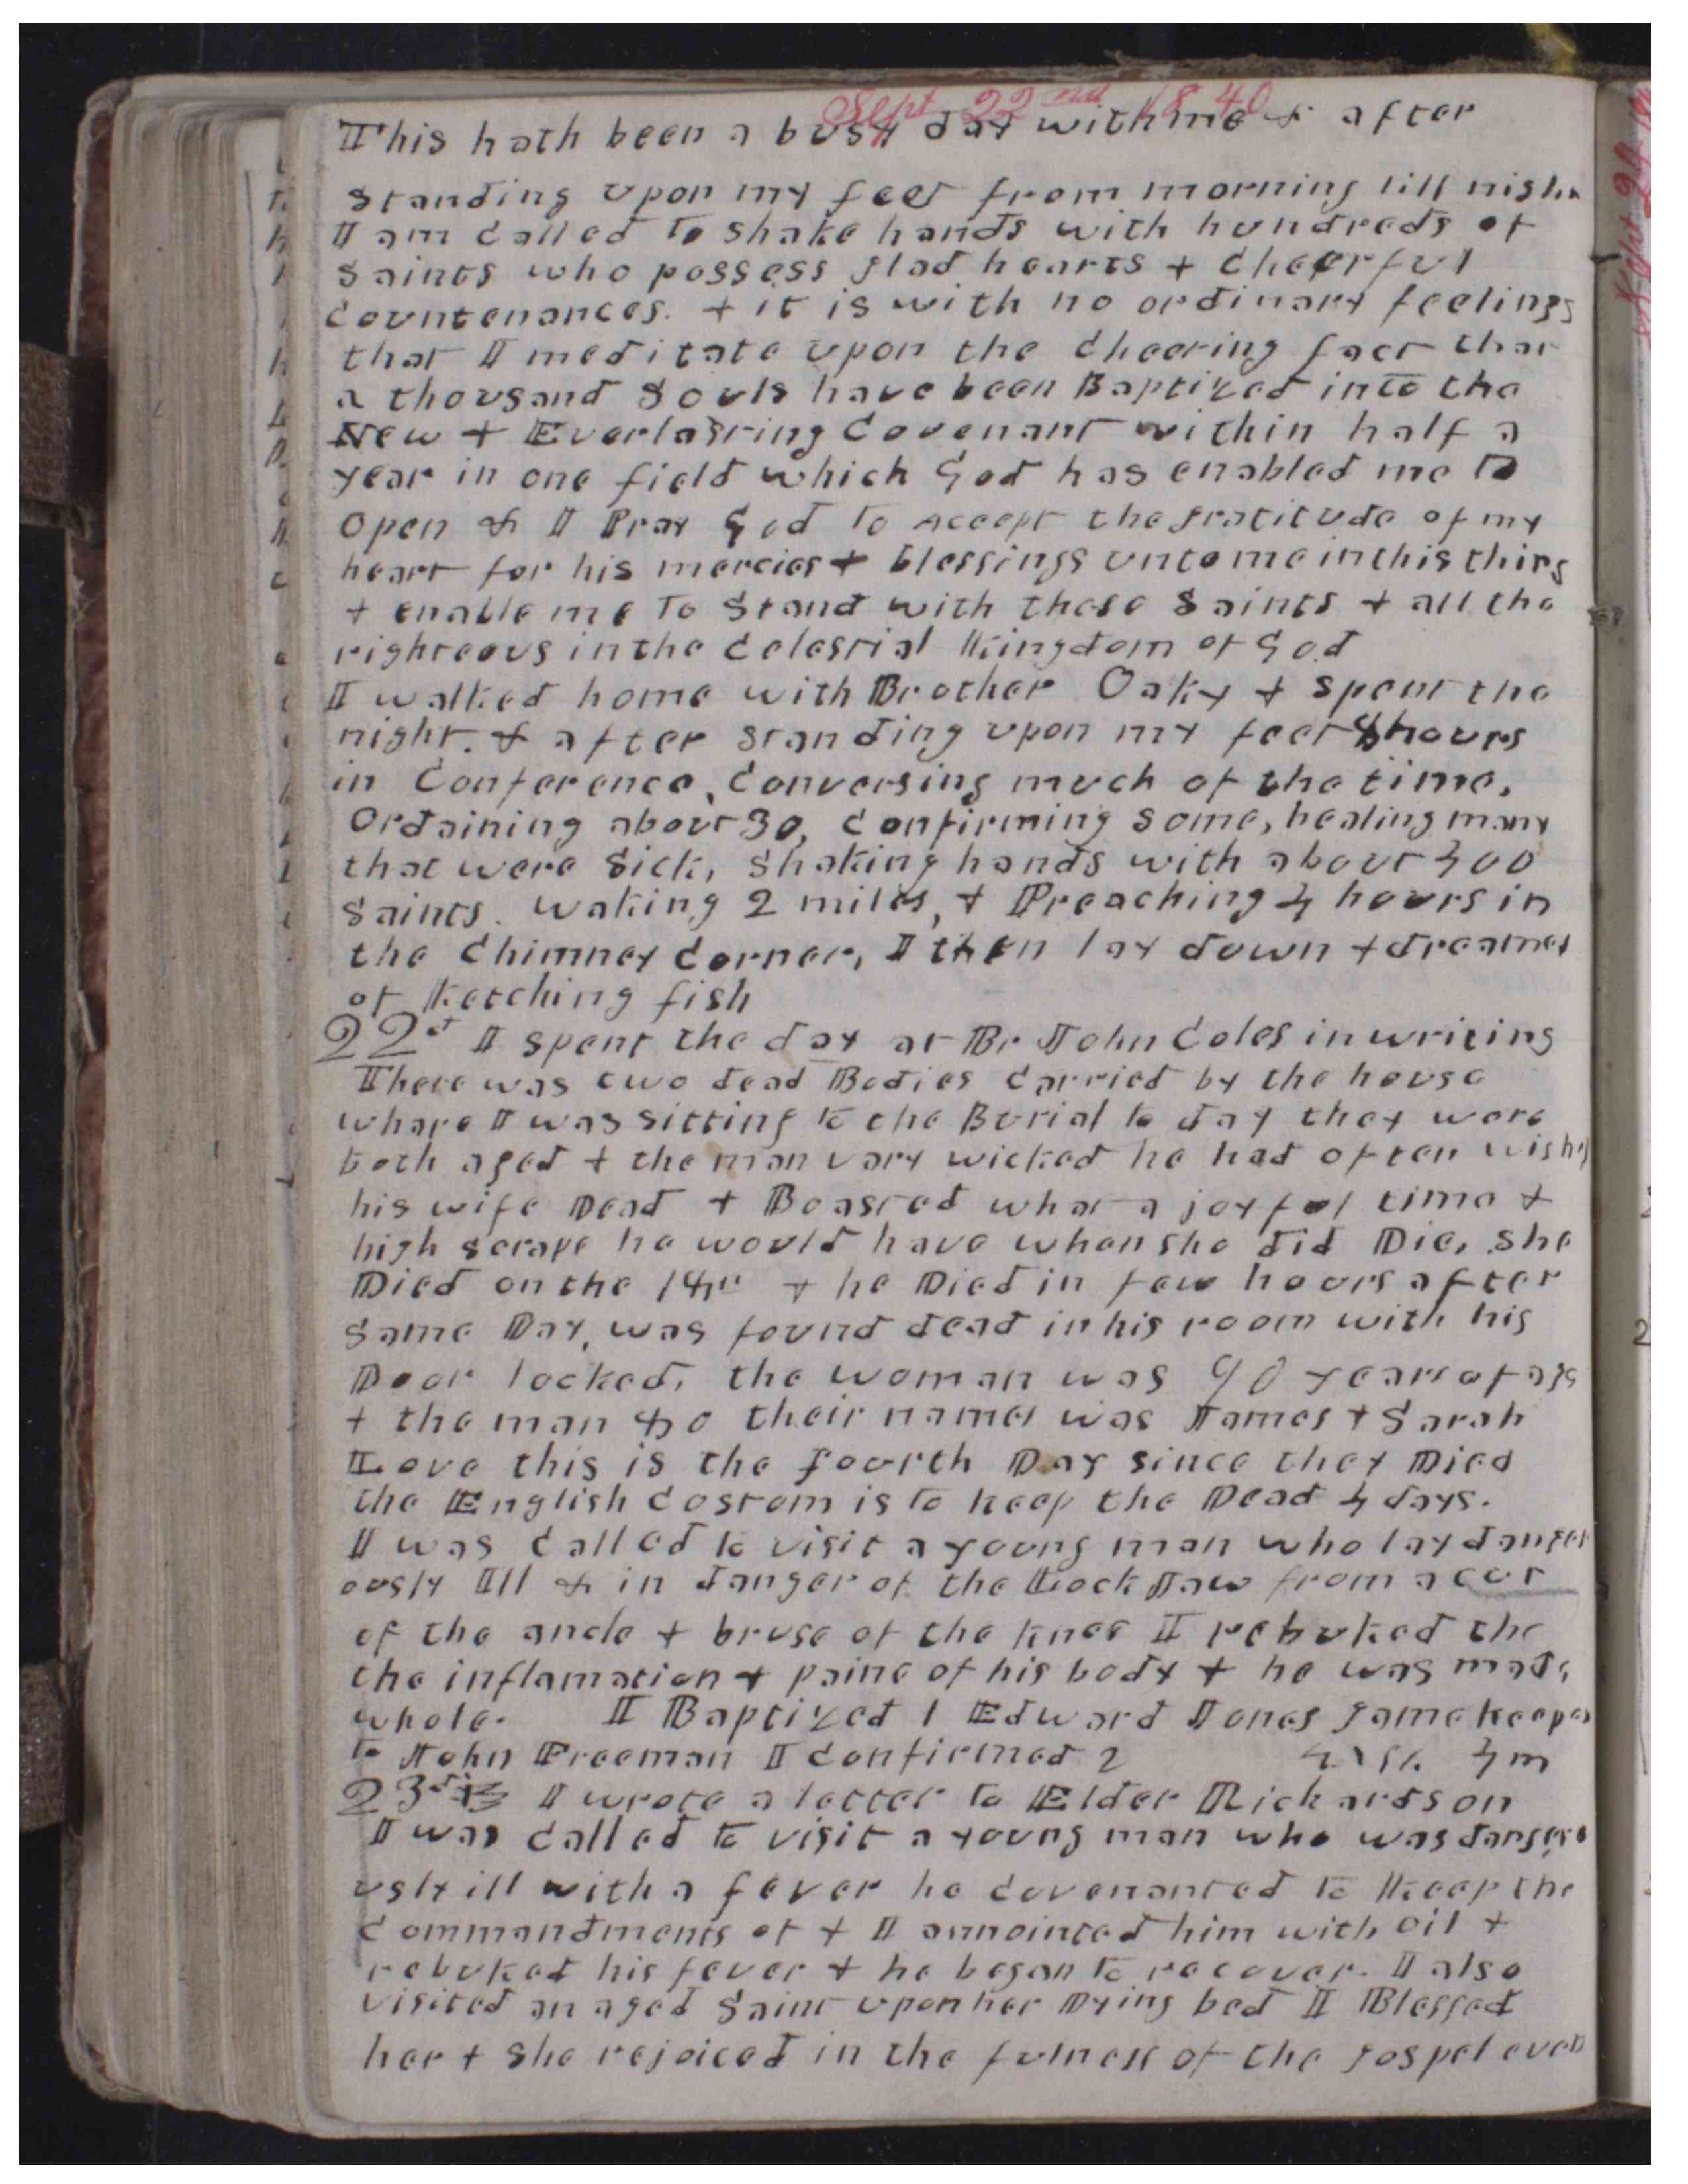 Sept 22nd 1840
This hath been a busy day with me & after
standing upon my feet from morning till night
I am called to shake hands with hundreds of
Saints who possess glad hearts & cheerful
countenances. & it is with no ordinary feelings
that I meditate upon the cheering fact that
a thousand Souls have been Baptized into the
New & Everlasting Covenant within half a
year in one field which God has enabled me to
open & I Pray God to accept the gratitude of my
heart for his mercies & blessings unto me in this thing
& enable me to Stand with those Saints & all the
righteous in the Celestial Kingdom of God
I walked home with Brother Oaky & spent the
night. & after standing upon my feet hours
in Conference, Conversing much of the time,
Ordaining about 30, Confirming some, healing many
that were Sick, Shaking hands with about 400
Saints. waking 2 miles, & Preaching 4 hours in
the Chimney Corner, I then lay down & dreamed
of Ketching fish
22d I spent the day at Br John Coles in writing
There was two dead Bodies carried by the house
whare I was sitting to the Burial to day they were
both aged & the man vary wicked he had often wished
his wife Dead & Boasted what a joyful time &
high scrape he would have when she did Die, she
Died on the 19th & he Died in few hours after
same Day, was found dead in his room with his
Door locked, the woman was 90 years of age
& the man 80 their names was James & Sarah
Love this is the fourth Day since they Died
the English Costom is to keep the Dead 4 days.
I was called to visit a young man who lay danger
ously Ill & in danger of the Lock Jaw from a cut
of the ancle & bruse of the knee I rebuked the
the inflamation & paine of his body & he was made
whole. I Baptized 1 Edward Jones game keeper
to John Freeman I confirmed 2 4 m
23d I wrote a letter to Elder Richardsson
I was called to visit a young man who was dangero
usly ill with a fever he covenanted to Keep the
Commandments of & I annointed him with oil &
rebuked his fever & he began to recover. I also
visited an aged Saint upon her Dying bed I Blessed
her & she rejoiced in the fulness of the gospel even